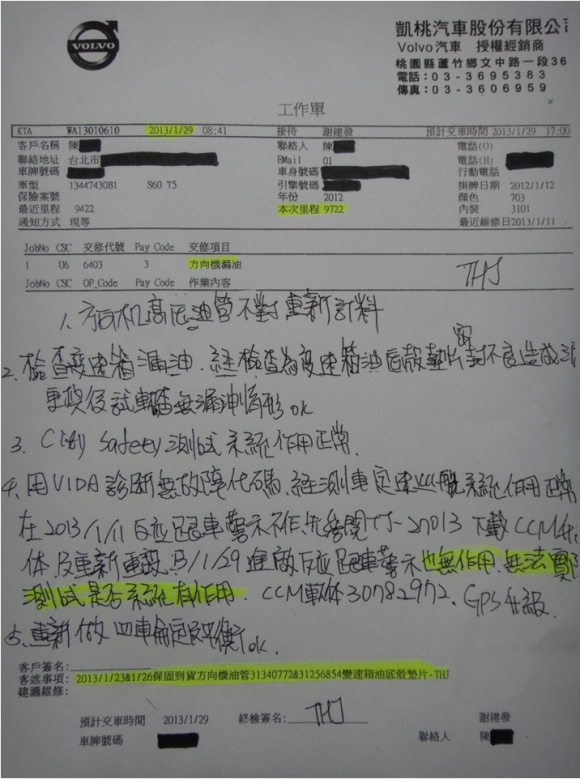 VOLVO
凱桃汽車股份有限公
Volvo汽車 授權經銷商
桃園縣蘆竹鄉文中路一段36
電話:03-3695383
傳真:03-3606959
工作單
KTA WA13010610 2013/1/29 08:41 接待 謝建發 預計交車時間 2013/1/29 17:00
客戶名稱 陳 聯絡人 陳 電話(O)
聯絡地址 台北市 EMail 01 電話(H)
車牌號碼 車身號碼 行動電話
車型 1344743081 S60 T5 引擎號碼 掛牌日期 2012/1/12
保險案號 年份 2012 顏色 703
最近里程 9422 本次里程 9722 內裝 3101
通知方式 現等 最近維修日2013/1/11
JobNo CSC 交修代號 Pay Code 交修項目
1 U6 6403 3 方向機漏油
JobNo CSC OP_Code Pay Code 作業內容
THJ
1. 方向机高压油管不對重新訂料
2. 檢查變速箱漏油.經檢查為變速箱油底殼墊片密封不良造成
更換後試車檢查無漏油情形ok
3. City Safety 測試系統作用正常.
4. 用VIDA診斷無故障代碼.經測車定速 系統作用正常
在2013/1/11反應跟車警示不作 TJ-27013下載CCM軟
體及重新重設. 1/29進廠反應跟車警示也無作用.無法實際
測試是否系統有作用. CCM軟体30782972. GPS升級.
5. 重新做四車輪定位平衡ok.
客戶簽名:
客述事項: 2013/1/23&1/26保固到貨方向機油管31340772&31256854變速箱油底殼墊片-THJ
建議維修:
預計交車時間 2013/1/29 終檢簽名: THJ 謝建發
車牌號碼 聯絡人 陳